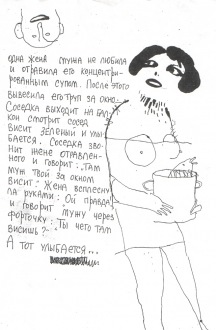 одна жена мужа не любила
и отравила его концентри-
рованным супом. После этого
вывесила его труп за окно.
Соседка выходит на бал-
кон смотрит сосед
висит зеленый и улы-
бается. Соседка зво-
нит жене отравлен-
ного и говорит: „Там
муж твой за окном
висит." Жена всплесну-
ла руками: Ой правда
и говорит мужу через
форточку: Ты чего там
висишь?-
А тот улыбается...